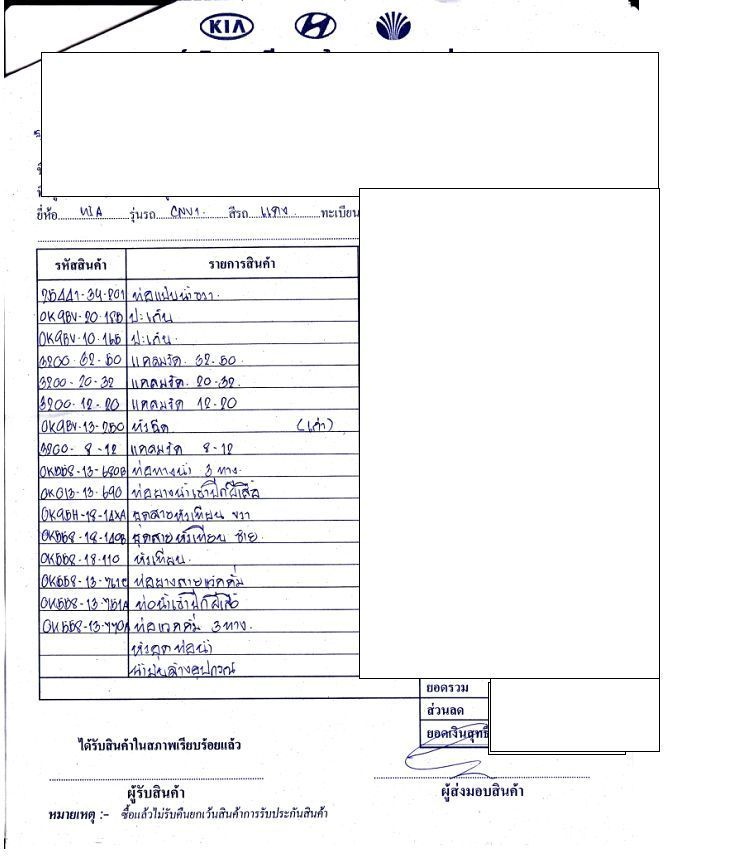 KIA
ยี่ห้อ KIA รุ่นรถ CNV1. สีรถ แดง ทะเบียน
รหัสสินค้า รายการสินค้า
25441-34-201 ท่อแป๊บน้ำขวา.
0K9BV-20-155 ปะเก็น
0K9BV-10-165 ปะเก็น.
3200-32-50 แคลมรัด. 32-50.
3200-20-32 แคลมรัด. 20-32.
3200-12-20 แคลมรัด 12-20
0K9BV-13-250 หัวฉีด (เก่า)
3200-8-12 แคลมรัด 8-12
0K558-13-680B ท่อทางน้ำ 3 ทาง.
0K013-13-690 ท่อยางน้ำเข้าปีกผีเสื้อ
0K95H-18-14XA ชุดสายหัวเทียน ขวา
0K558-18-140B ชุดสายหัวเทียน ซ้าย.
0K558-18-110 หัวเทียน.
ท่อยางสายแวคคั่ม
0K558-13-751A ท่อน้ำเข้าปีกผีเสื้อ
0K558-13-770A ท่อแวคคั่ม 3 ทาง.
หัวอุดท่อน้ำ
น้ำมันล้างอุปกรณ์
ยอดรวม
ส่วนลด
ยอดเงินสุทธิ
ได้รับสินค้าในสภาพเรียบร้อยแล้ว
ผู้รับสินค้า ผู้ส่งมอบสินค้า
หมายเหตุ :- ซื้อแล้วไม่รับคืนยกเว้นสินค้าการรับประกันสินค้า